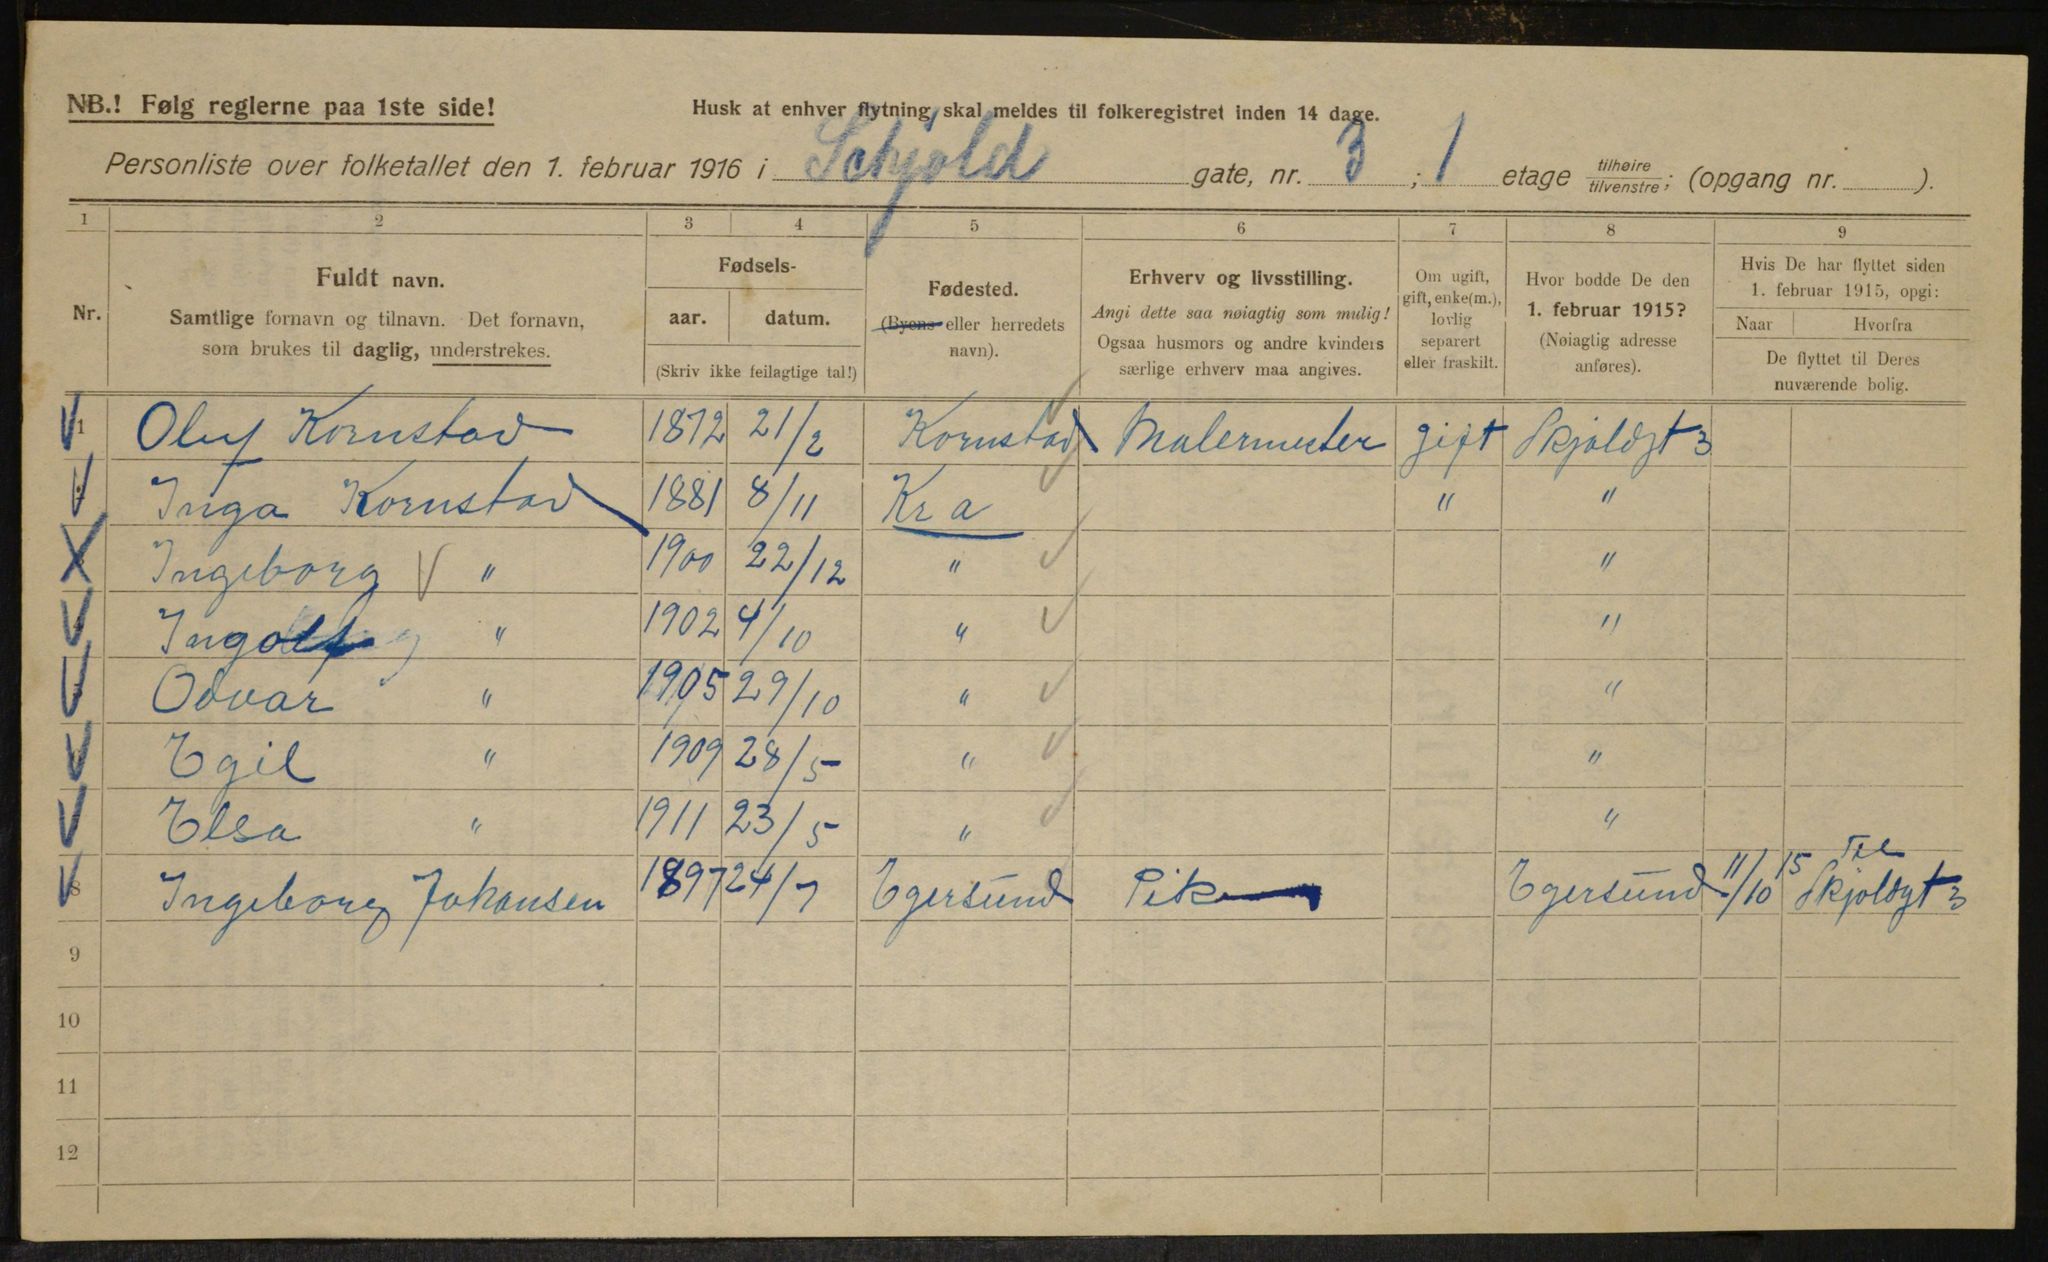 NB.! Følg reglerne paa 1ste side!
Husk at enhver flytning skal meldes til folkeregistret inden 14 dage.
Personliste over folketallet den 1. februar 1916 i Schjold gate, nr. 3 ; 1 etage tilhøire/tilvenstre; (opgang nr. ).
1 2 3 4 5 6 7 8 9
Nr.
Fuldt navn.
Samtlige fornavn og tilnavn. Det fornavn,
som brukes til daglig, understrekes.
Fødsels-
aar. datum.
(Skriv ikke feilagtige tal!)
Fødested.
(Byens eller herredets
navn).
Erhverv og livsstilling.
Angi dette saa nøiagtig som mulig!
Ogsaa husmors og andre kvinders
særlige erhverv maa angives.
Om ugift,
gift, enke(m.),
lovlig
separert
eller fraskilt.
Hvor bodde De den
1. februar 1915?
(Nøiagtig adresse
anføres).
Hvis De har flyttet siden
1. februar 1915, opgi:
Naar Hvorfra
De flyttet til Deres
nuværende bolig.
1 Oluf Kornstad 1872 21/2 Kornstad Malermester gift Skjoldgt 3
Inga Kornstad 1881 8/11 Kra " "
Ingeborg " 1900 22/12 " "
Ingolf " 1902 4/10 " "
Odvar " 1905 29/10 " "
Egil " 1909 28/5 " "
Elsa " 1911 23/5 " "
8 Ingeborg Johansen 1897 24/7 Egersund Pike Egersund 11/10 15 Til Skjoldgt 3
9
10
11
12